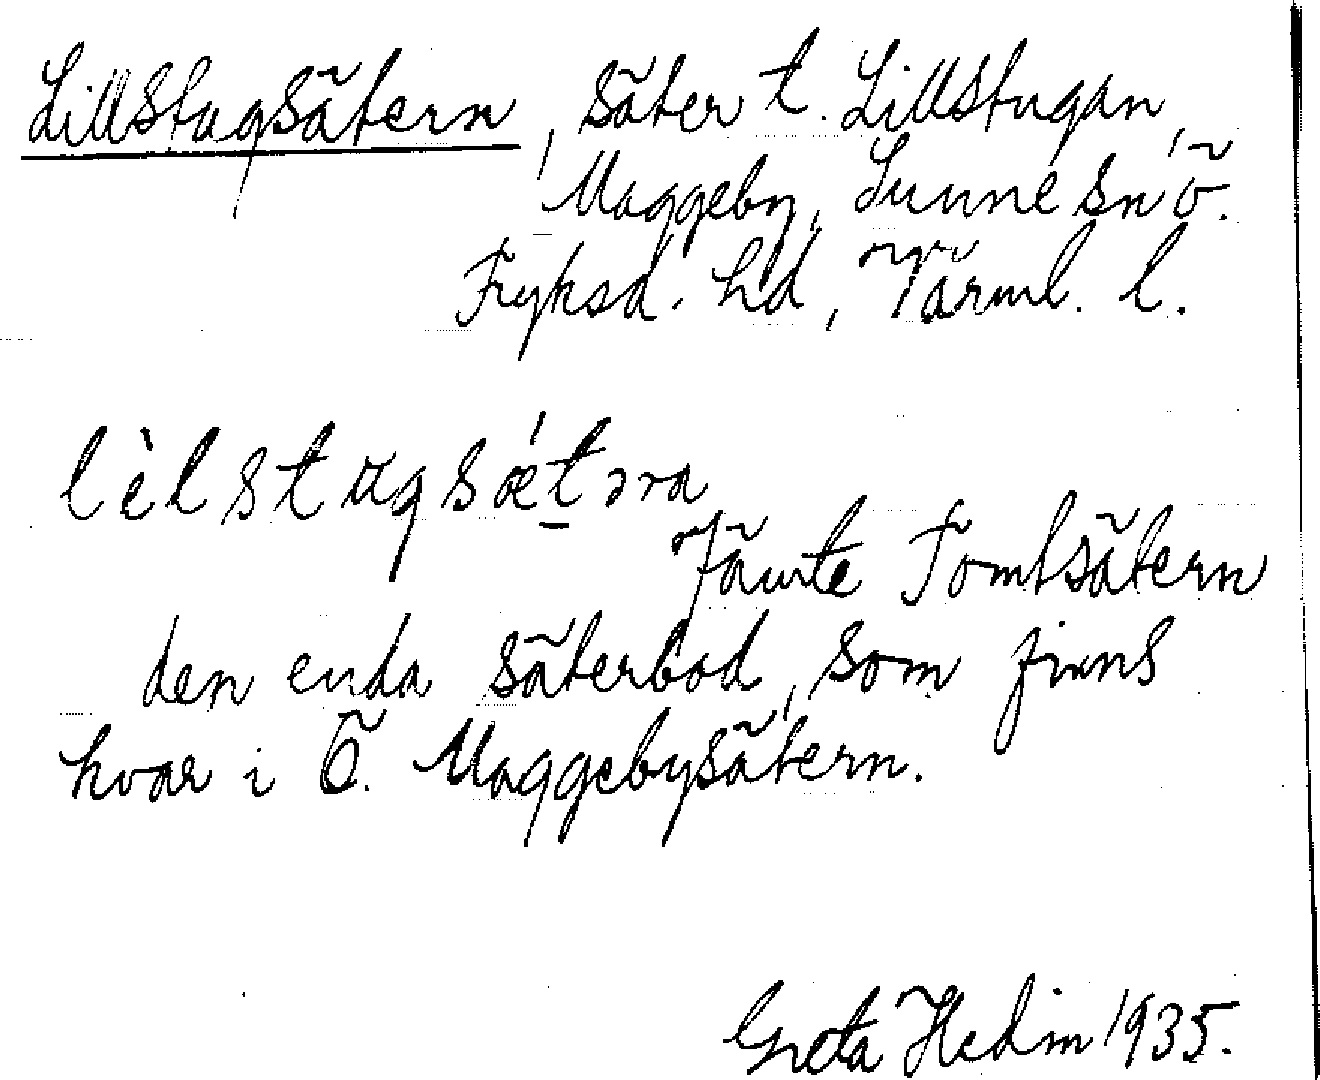 Lillstugsätern, säter t. Lillstugan,
Maggeby, Sunne sn, Ö.
Fryksd. hd, Värml. l.
lèlstugsǽtəra
Jämte Tomtsätern
den enda säterbod, som finns
kvar i Ö. Maggebysätern.
Greta Hedin 1935.